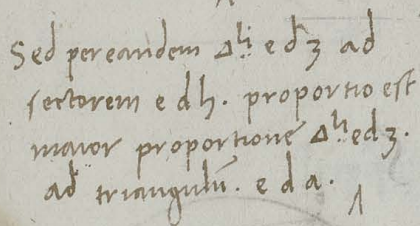 Sed per eandem Δli e d z ad
sectorem e d h. proportio est
maior proportione Δli e d z.
ad triangulū. e d a.